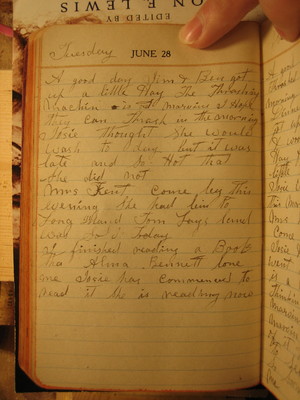 ON E LEWIS
EDITED BY
Tuesday JUNE 28
A good day Jim & Ben got
up a little Hay The Thrashing
Machin is at Marvins I Hope
they can Thrash in the morning
Josie Thought She would
Wash to day but it was
late and so Hot that
She did not
Mrs Kent Come by this
evening She had bin to
Long Mand Tom Jays
was to Today
I finished reading a Book
that Alma Bennett lone
me Josie has Commenced to
read it She is reading now